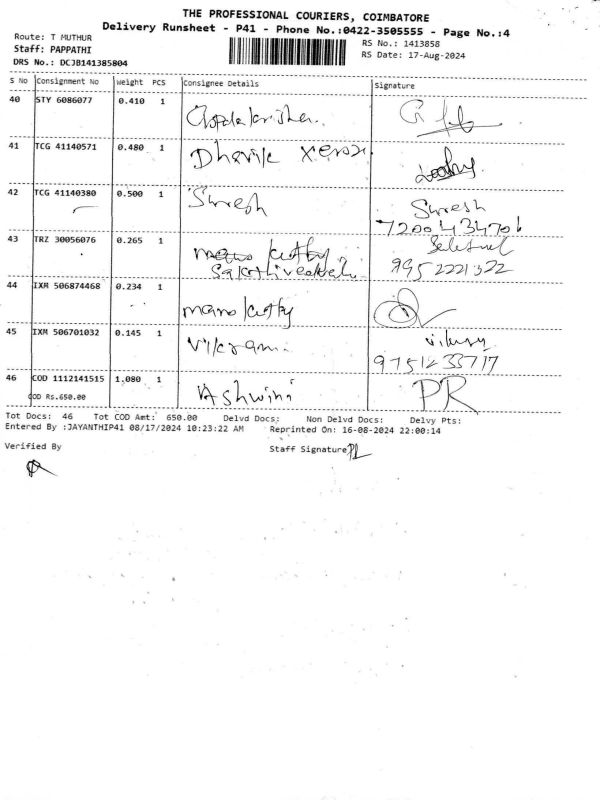 THE PROFESSIONAL COURIERS, COIMBATORE
Delivery Runsheet - P41 - Phone No.:0422-3505555 - Page No.:4
Route: T MUTHUR
Staff: PAPPATHI
DRS No.: DCJB141385804
RS No.: 1413858
RS Date: 17-Aug-2024
S No Consignment No Weight PCS Consignee Details Signature
40 STY 6086077 0.410 1
41 TCG 41140571 0.480 1 Dharik xerox
42 TCG 41140380 0.500 1 Suresh Suresh
7200434706
43 TRZ 30056076 0.265 1
9952221322
44 IXM 506874468 0.234 1 mano kutty
45 IXM 506701032 0.145 1 Vikram
9751233717
46 COD 1112141515 1.080 1 Ashwini PR
COD Rs.650.00
Tot Docs: 46 Tot COD Amt: 650.00 Delvd Docs: Non Delvd Docs: Delvy Pts:
Entered By :JAYANTHIP41 08/17/2024 10:23:22 AM Reprinted On: 16-08-2024 22:00:14
Verified By Staff Signature